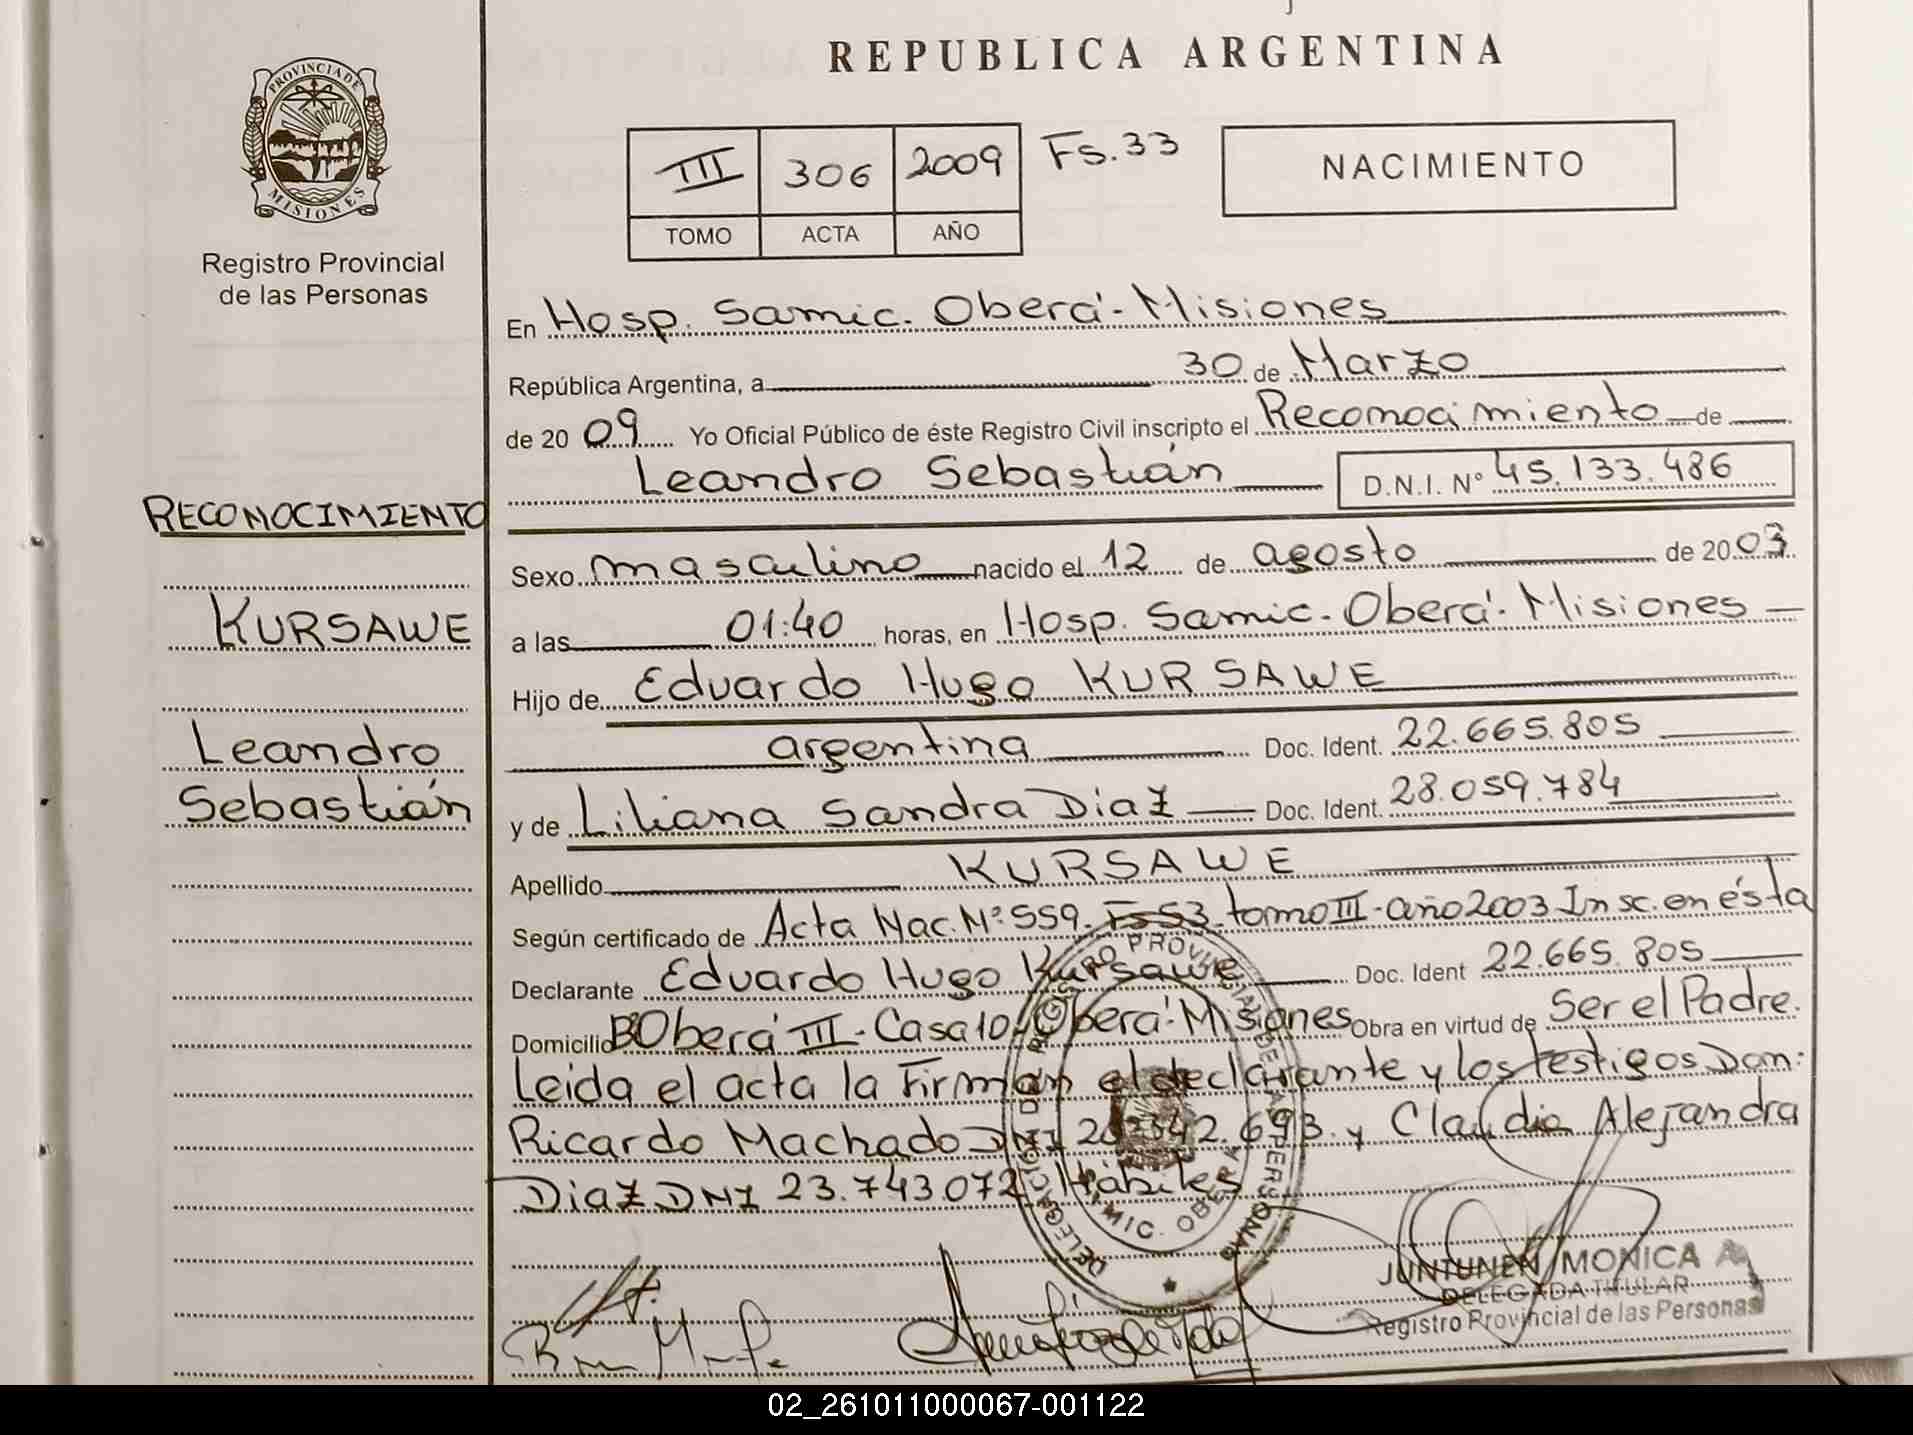 REPUBLICA ARGENTINA
PROVINCIA DE MISIONES
Registro Provincial
de las Personas
III 306 2009 Fs.33
TOMO ACTA AÑO
NACIMIENTO
En Hosp. Samic. Oberá - Misiones
República Argentina, a 30 de Marzo
de 2009 Yo Oficial Público de éste Registro Civil inscripto el Reconocimiento de
Leandro Sebastián D.N.I. Nº 45.133.486
RECONOCIMIENTO
Sexo masculino nacido el 12 de agosto de 2003
KURSAWE
a las 01:40 horas, en Hosp. Samic. Oberá - Misiones
Hijo de Eduardo Hugo KURSAWE
Leandro
argentina Doc. Ident. 22.665.805
Sebastián
y de Liliana Sandra Diaz Doc. Ident. 28.059.784
Apellido KURSAWE
Según certificado de Acta Nac. Nº 559. Fs 53. tomo III - año 2003 Insc. en ésta
Declarante Eduardo Hugo Kursawe Doc. Ident 22.665.805
Domicilio Bº Oberá III - Casa 10 - Oberá - Misiones Obra en virtud de Ser el Padre.
Leida el acta la Firman el declarante y los testigos Don:
Ricardo Machado DNI 342.693. y Claudia Alejandra
Diaz DNI 23.743.072 Hábiles
REGISTRO PROVINCIAL DE LAS PERSONAS
DELEGACION
SAMIC. OBERA
JUNTUNEN MONICA A
DELEGADA TITULAR
Registro Provincial de las Personas
02_261011000067-001122